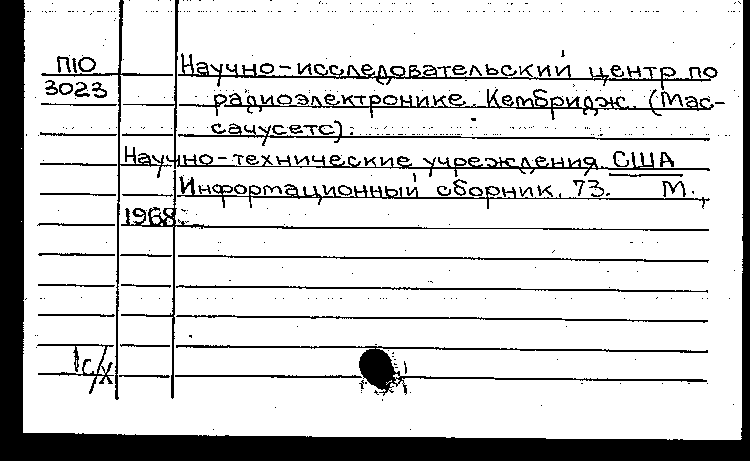 П10 Научно-исследовательский центр по
3023 радиоэлектронике. Кембридж. (Мас-
сачусетс).
Научно-технические учреждения США
Информационный сборник. 73. М.,
1968.
1с/х